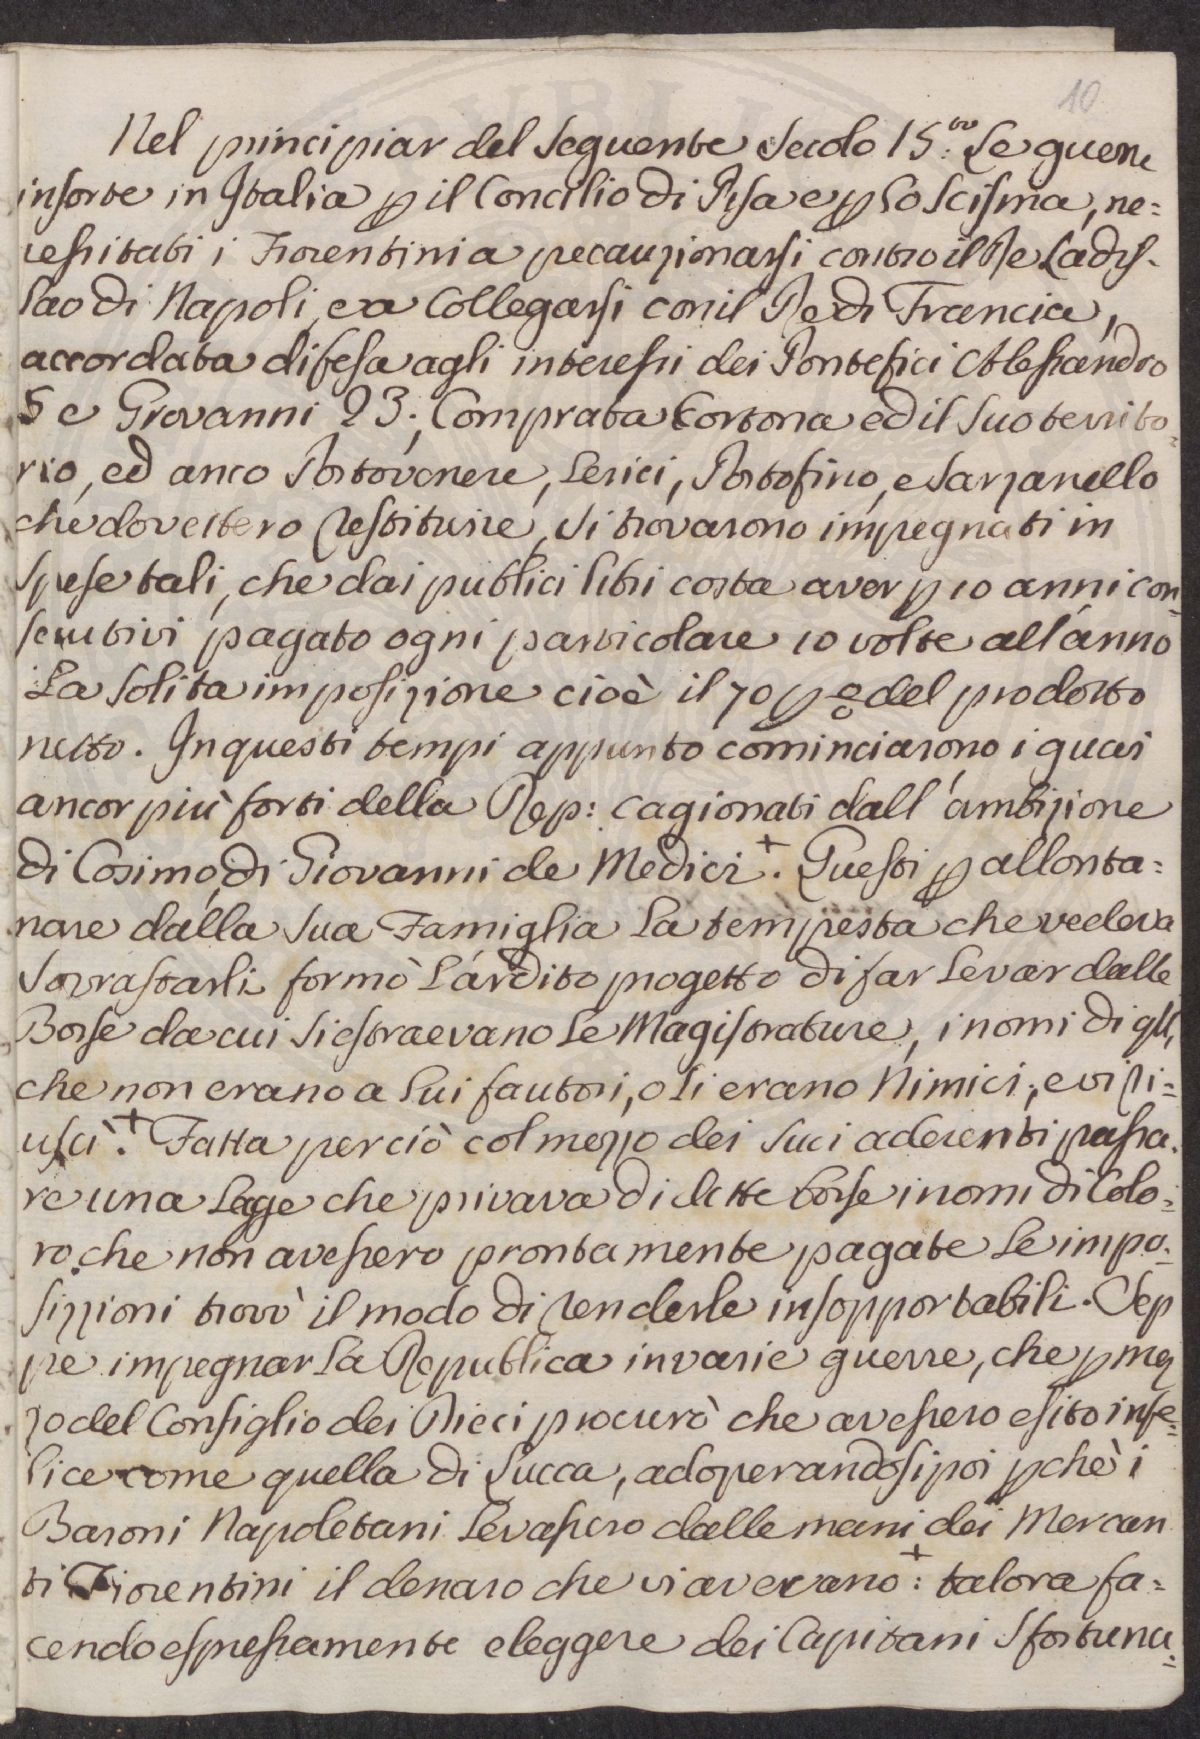 10
Nel principiar del seguente secolo 15.mo le guerre
insorte in Italia p il Concilio di Pisa e p lo scisma, ne=
cessitati i Fiorentini a precauzionarsi contro il Re Ladis-
lao di Napoli, e a Collegarsi con il Re di Francia,
accordata difesa agli interessi dei Pontefici Alessandro
5 e Giovanni 23; Comprata Cortona ed il suo territo=
rio, ed anco Portovenere, Lerici, Portofino, e Sarzanello
che dovettero restituire, si trovarono impegnati in
spese tali, che dai publici libri costa aver p 10 anni con=
secutivi pagato ogni particolare 10 volte all'anno
la solita imposizione cioè il 70 p % del prodotto
netto. In questi tempi appunto cominciarono i guai
ancor più forti della Rep: cagionati dall'ambizione
di Cosimo di Giovanni de Medici +. Questi p allonta=
nare dalla sua Famiglia la tempesta che vedeva
sovrastarli formò l'ardito progetto di far levar dalle
Borse da cui si estraevano le Magistrature, i nomi di qlli,
che non erano a lui fautori, o li erano Nimici; e vi ri=
uscì +. Fatta perciò col mezzo dei suoi aderenti passa=
re una Legge che privava di dette borse i nomi di Colo=
ro che non avessero prontamente pagate le impo=
sizzioni trovò il modo di renderle insopportabili. Sep
pe impegnar la Republica in varie guerre, che p mez
zo del Consiglio dei Dieci procurò che avessero esito infe=
lice come quella di Lucca, adoperandosi poi pchè i
Baroni Napoletani levassero dalle mani dei Mercan
ti Fiorentini il denaro che vi avevano +: talora fa=
cendo espressamente eleggere dei Capitani sfortuna=